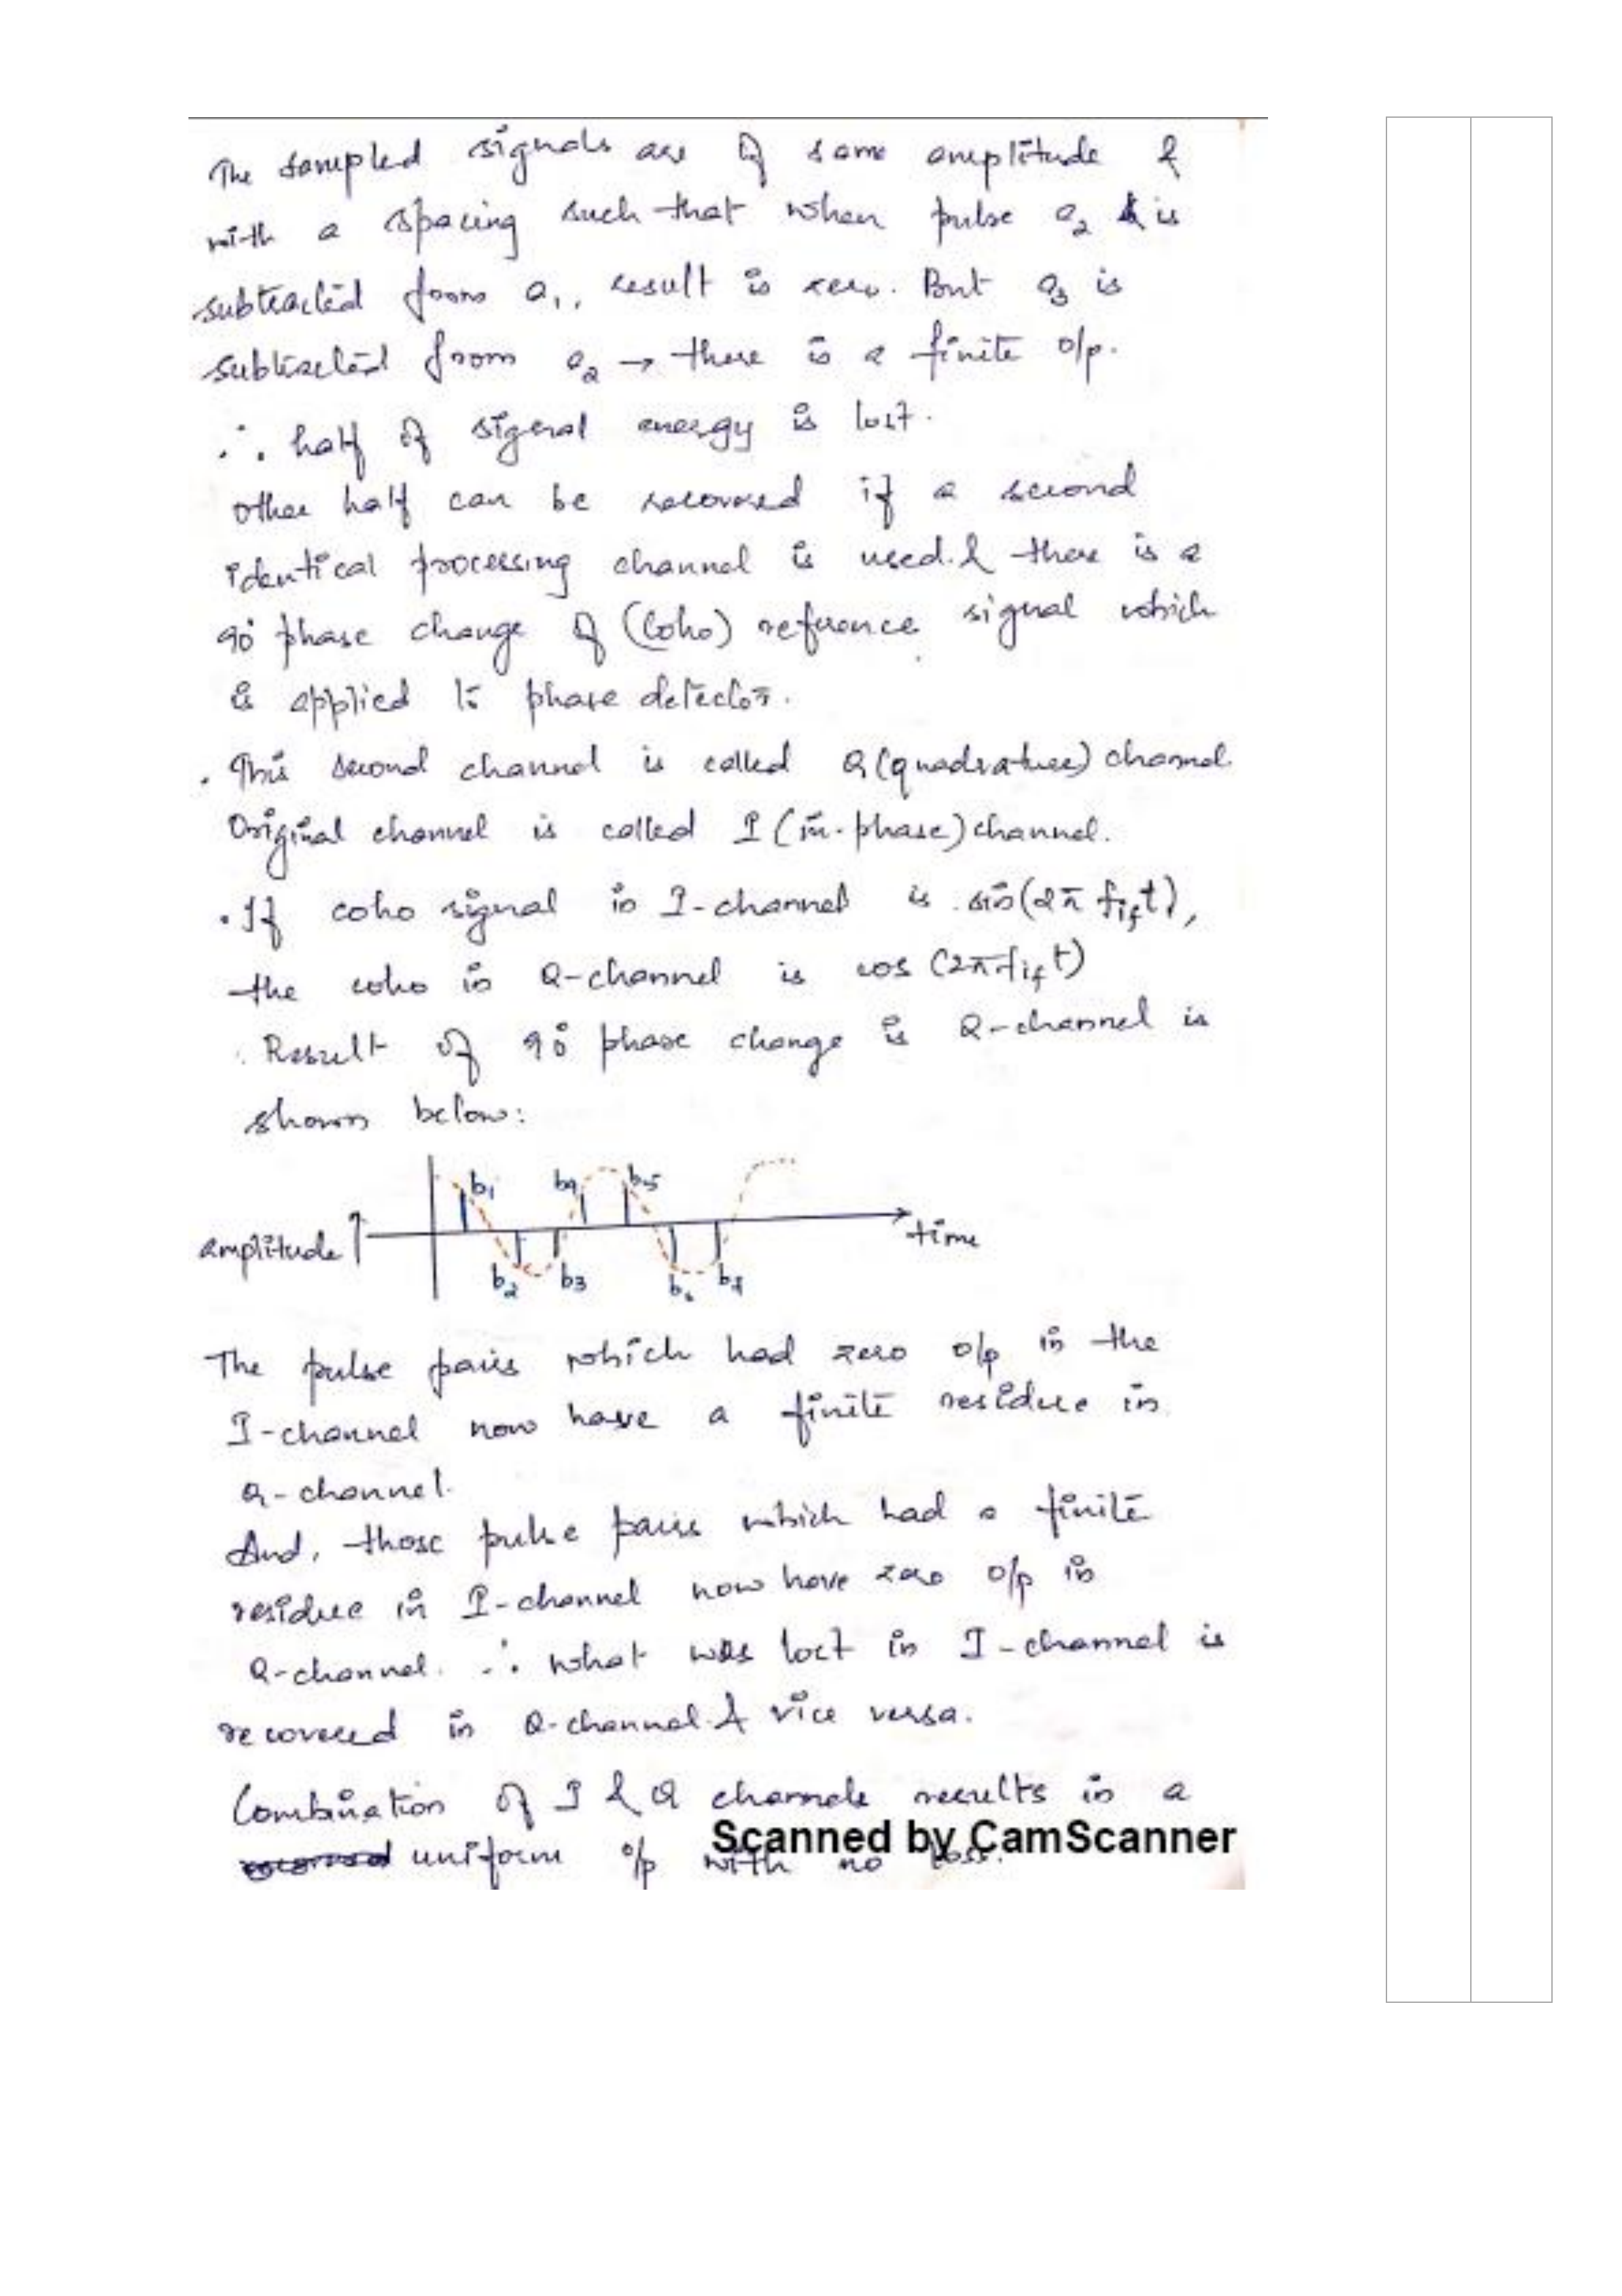 The sampled signals are of same amplitude &
with a spacing such that when pulse a₂ is
subtracted from a₁, result is zero. But a₃ is
subtracted from a₂ → there is a finite o/p.
∴ half of signal energy is lost.
Other half can be recovered if a second
identical processing channel is used. & there is a
90° phase change of (Coho) reference signal which
is applied to phase detector.
. This second channel is called Q (quadrature) channel.
Original channel is called I (in-phase) channel.
. If coho signal in I-channel is sin(2π f_if t),
the coho in Q-channel is cos (2π f_if t)
. Result of 90° phase change is Q-channel is
shown below:
b₁ b₄ b₅
amplitude ↑ time
b₂ b₃ b₆ b₇
The pulse pairs which had zero o/p in the
I-channel now have a finite residue in
Q-channel.
And, those pulse pairs which had a finite
residue in I-channel now have zero o/p in
Q-channel. ∴ what was lost in I-channel is
recovered in Q-channel & vice versa.
Combination of I & Q channels results in a
uniform o/p with no loss.
Scanned by CamScanner